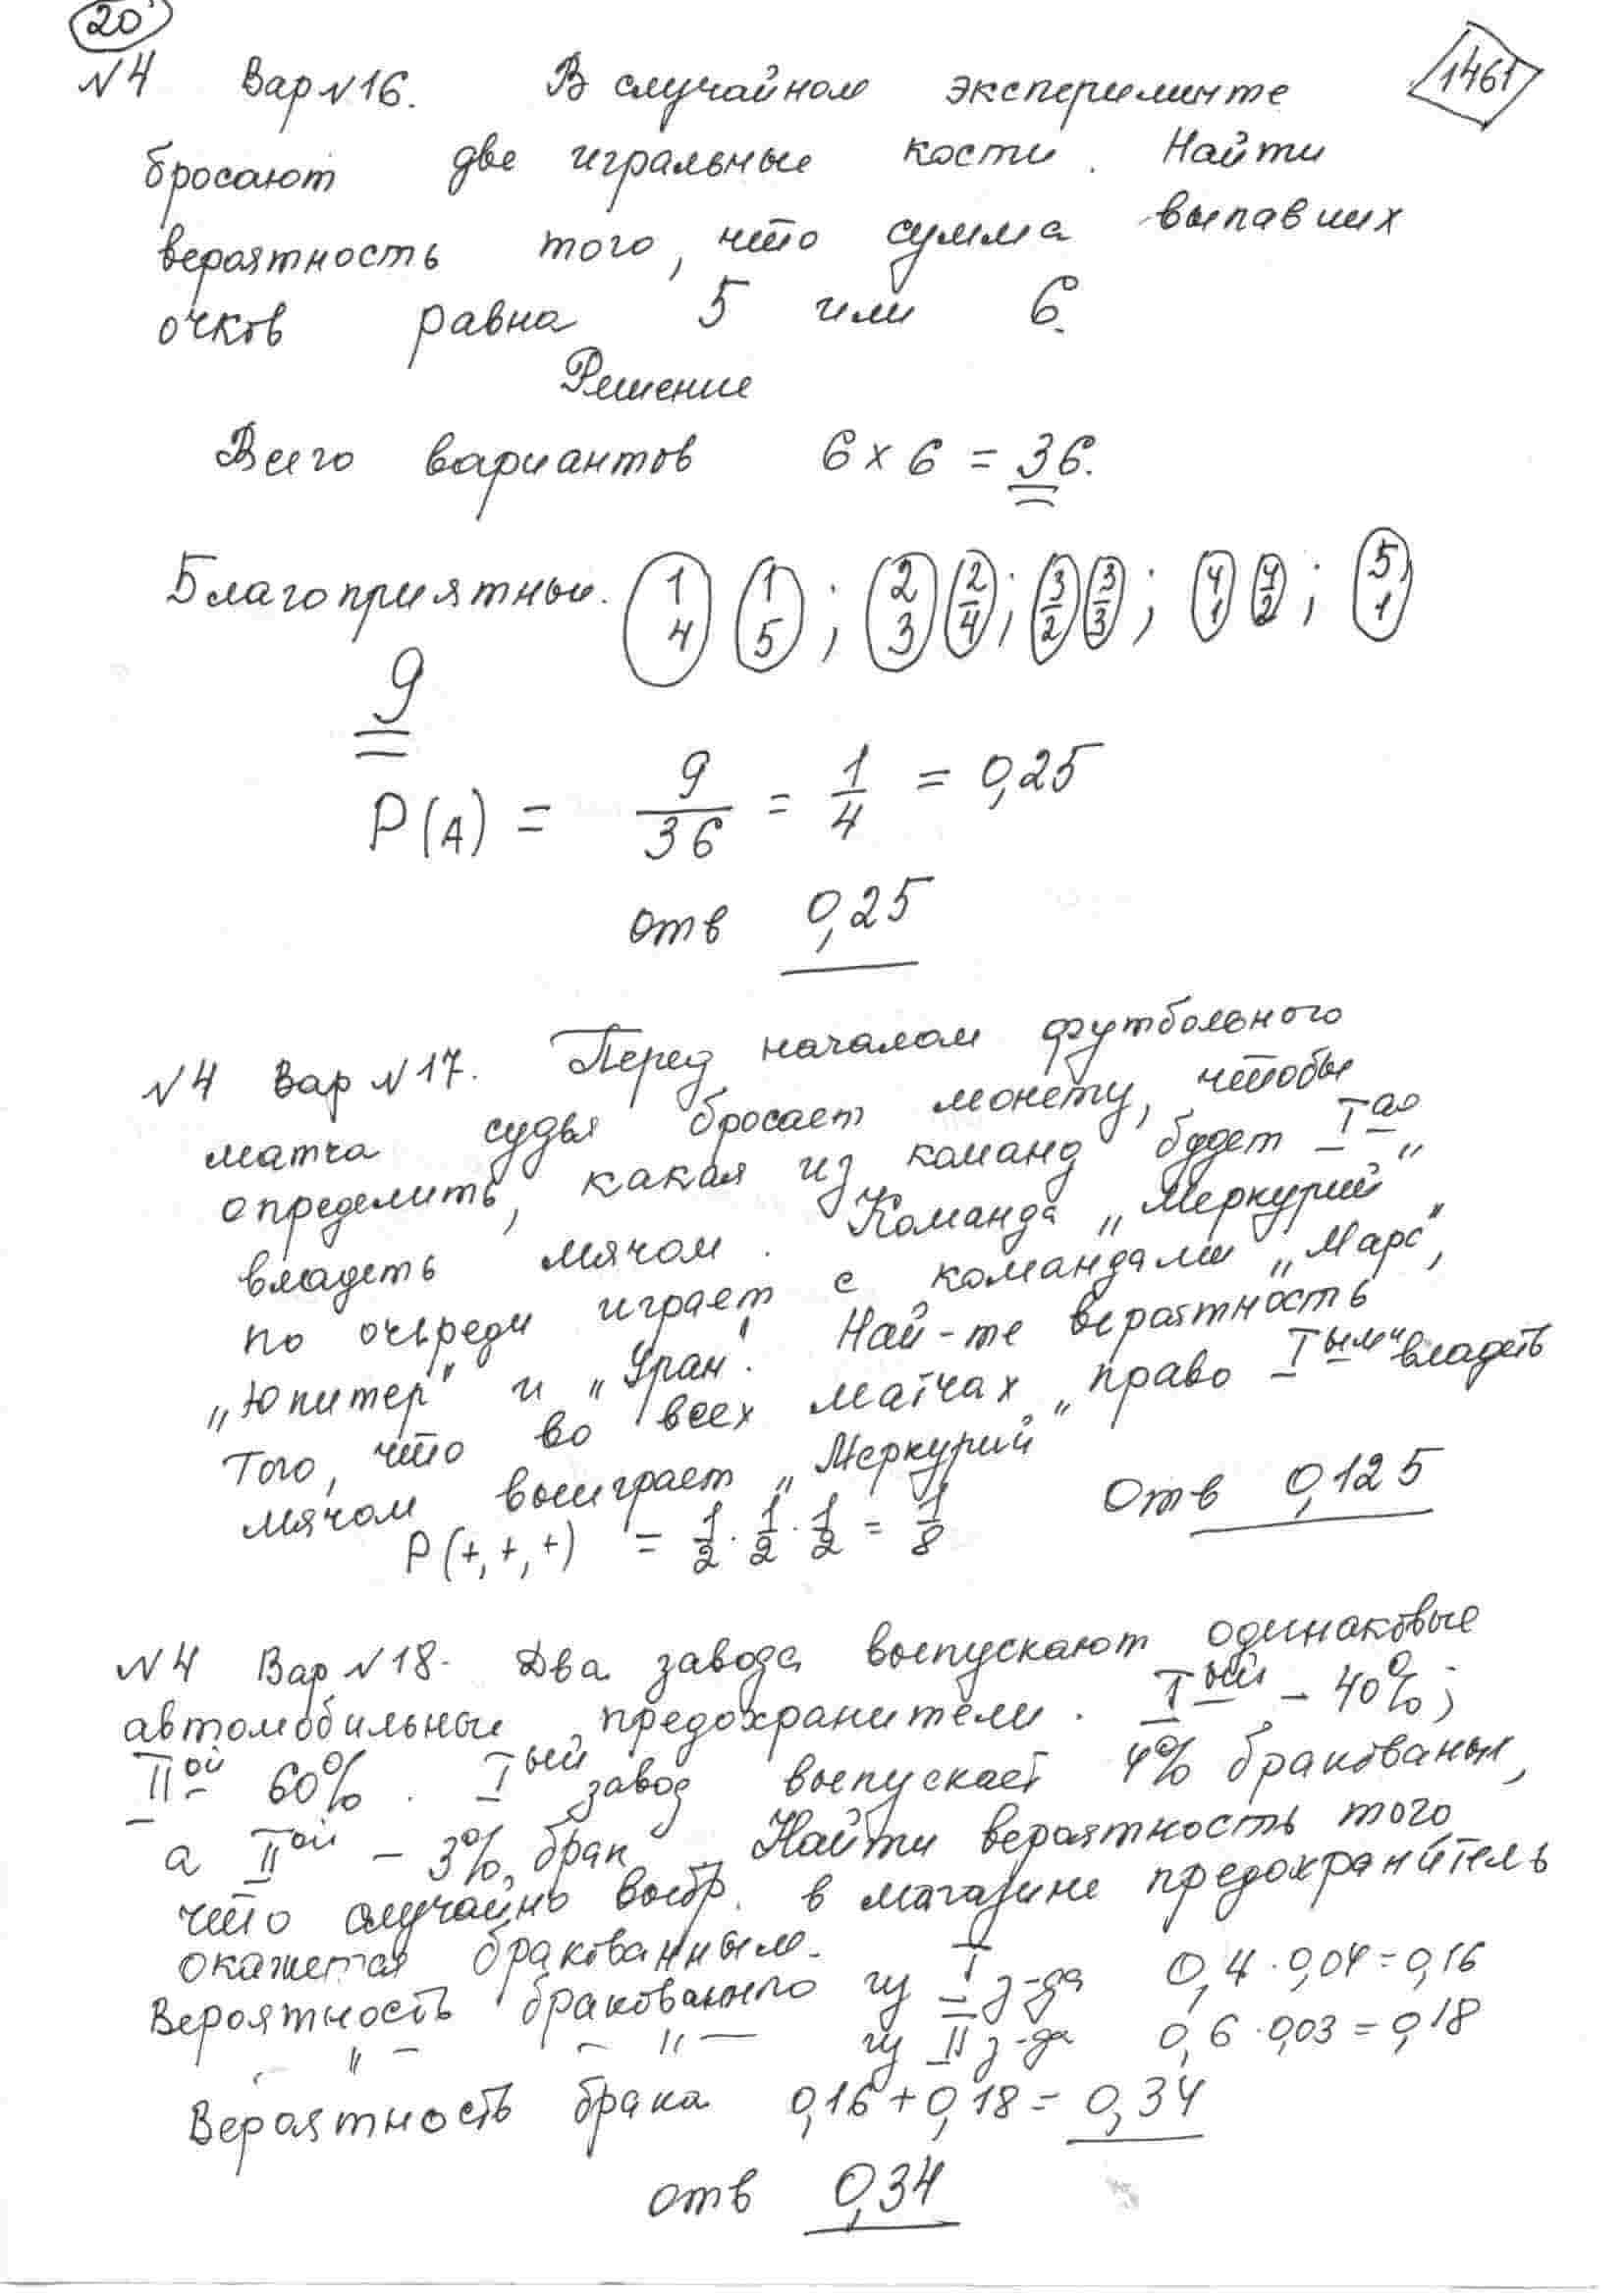 20
№4 Вар №16. В случайном эксперименте
1461
бросают две игральные кости. Найти
вероятность того, что сумма выпавших
очков равна 5 или 6.
Решение
Всего вариантов 6 × 6 = 36.
Благоприятные. 1 4 1 5 ; 2 3 2 4 ; 3 2 3 3 ; 4 1 4 2 ; 5 1
9
P(A) = 9/36 = 1/4 = 0,25
отв 0,25
№4 Вар №17. Перед началом футбольного
матча судья бросает монету, чтобы
определить, какая из команд будет I ая „
владеть мячом. Команда „Меркурий"
по очереди играет с командами „Марс",
„Юпитер" и „Уран". Най-те вероятность
того, что во всех матчах „право I ым" владеть
мячом выиграет „Меркурий"
P(+,+,+) = 1/2 · 1/2 · 1/2 = 1/8
Отв 0,125
№4 Вар №18. Два завода выпускают одинаковые
автомобильные предохранители. I ый – 40%;
II ой 60%. I ый завод выпускает 4% бракованых,
а II ой – 3% брак. Найти вероятность того
что случайно выбр. в магазине предохранитель
окажется бракованным.
Вероятность бракованного из I з-да 0,4 · 0,04 = 0,16
– " – – " – из II з-да 0,6 · 0,03 = 0,18
Вероятность брака 0,16 + 0,18 = 0,34
отв 0,34